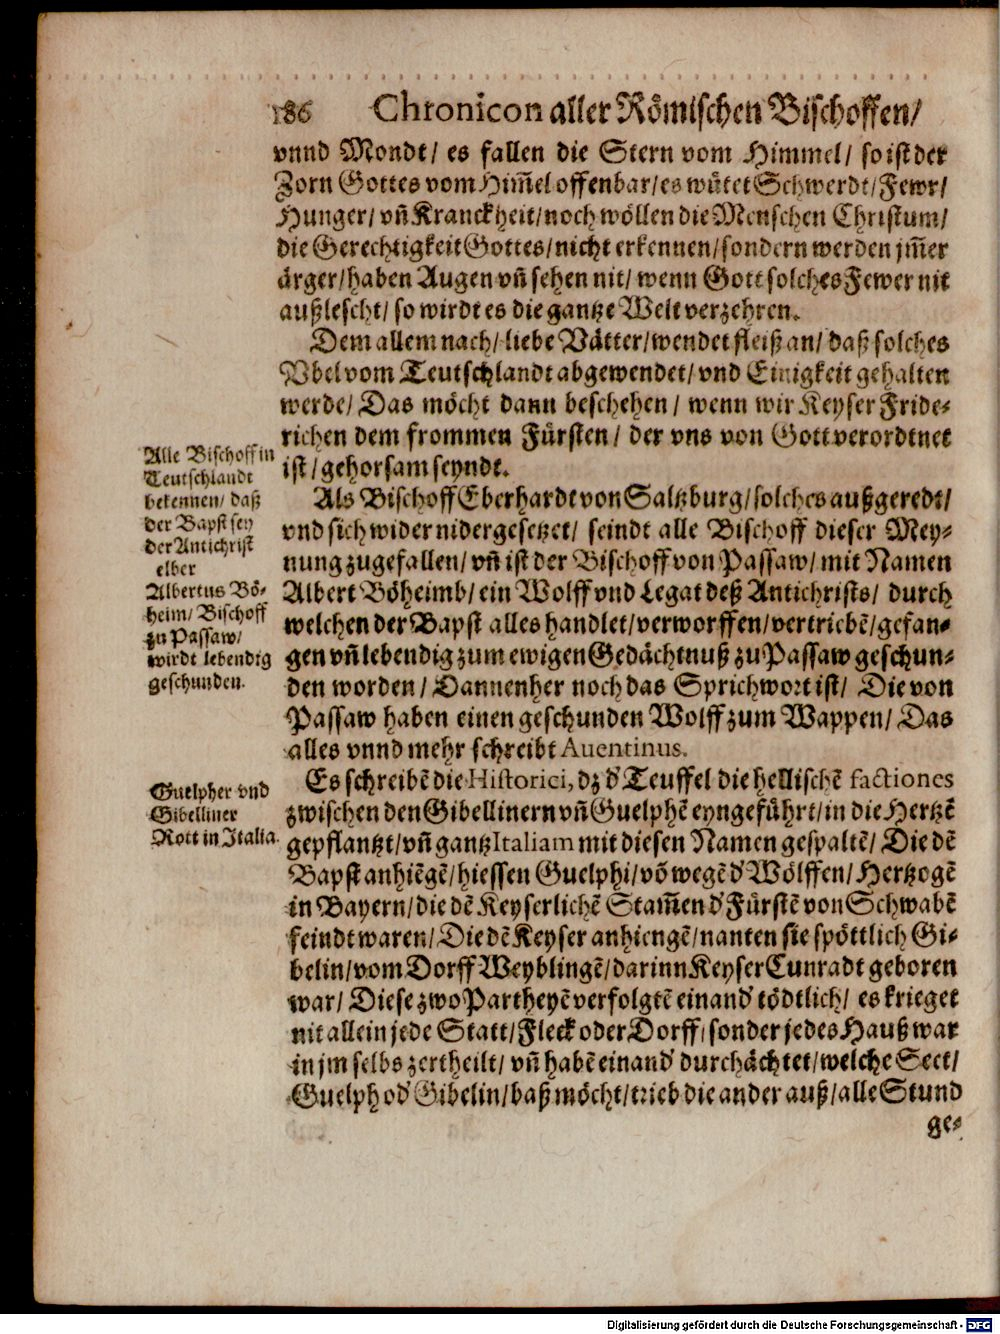 186 Chronicon aller Römischen Bischoffen/
vnnd Mondt/ es fallen die Stern vom Himmel/ so ist der
Zorn Gottes vom Him̃el offenbar/ es wütet Schwerdt/ Fewr/
Hunger/ vñ Kranckheit/ noch wöllen die Menschen Christum/
die Gerechtigkeit Gottes/ nicht erkennen/ sondern werden jm̃er
ärger/ haben Augen vñ sehen nit/ wenn Gott solches Fewer nit
außlescht/ so wirdt es die gantze Welt verzehren.
Dem allem nach/ liebe Vätter/ wendet fleiß an/ daß solches
Vbel vom Teutschlandt abgewendet/ vnd Einigkeit gehalten
werde/ Das möcht dann beschehen/ wenn wir Keyser Fride⸗
richen dem frommen Fürsten/ der vns von Gott verordtnet
ist/ gehorsam seyndt.
Alle Bischoff in
Teutschlandt
bekennen/ daß
der Bapst sey
der Antichrist
elber
Als Bischoff Eberhardt von Saltzburg/ solches außgeredt/
vnd sich wider nidergesetzet/ seindt alle Bischoff dieser Mey⸗
nung zugefallen/ vñ ist der Bischoff von Passaw/ mit Namen
Albert Böheimb/ ein Wolff vnd Legat deß Antichrists/ durch
welchen der Bapst alles handlet/ verworffen/ vertriebẽ/ gefan⸗
gen vñ lebendig zum ewigen Gedächtnuß zu Passaw geschun⸗
den worden/ Dannenher noch das Sprichwort ist/ Die von
Passaw haben einen geschunden Wolff zum Wappen/ Das
alles vnnd mehr schreibt Auentinus.
Albertus Bö⸗
heim/ Bischoff
zu Passaw/
wirdt lebendig
geschunden.
Es schreibẽ die Historici, dz d' Teuffel die hellischẽ factiones
zwischen den Gibellinern vñ Guelphẽ eyngeführt/ in die Hertzẽ
gepflantzt/ vñ gantz Italiam mit diesen Namen gespaltẽ/ Die dẽ
Bapst anhiẽgẽ/ hiessen Guelphi/ võ wegẽ d' Wölffen/ Hertzogẽ
in Bayern/ die dẽ Keyserlichẽ Stam̃en d' Fürstẽ von Schwabẽ
feindt waren/ Die dẽ Keyser anhiengẽ/ nanten sie spöttlich Gi⸗
belin/ vom Dorff Weyblingẽ/ darinn Keyser Cunradt geboren
war/ Diese zwo Partheyẽ verfolgtẽ einand' tödtlich/ es krieget
nit allein jede Statt/ Fleck oder Dorff/ sonder jedes Hauß war
in jm selbs zertheilt/ vñ habẽ einand' durchächtet/ welche Sect/
Guelph od' Gibelin/ baß möcht/ trieb die ander auß/ alle Stund
ge⸗
Guelpher vnd
Gibelliner
Rott in Italia.
Digitalisierung gefördert durch die Deutsche Forschungsgemeinschaft - DFG